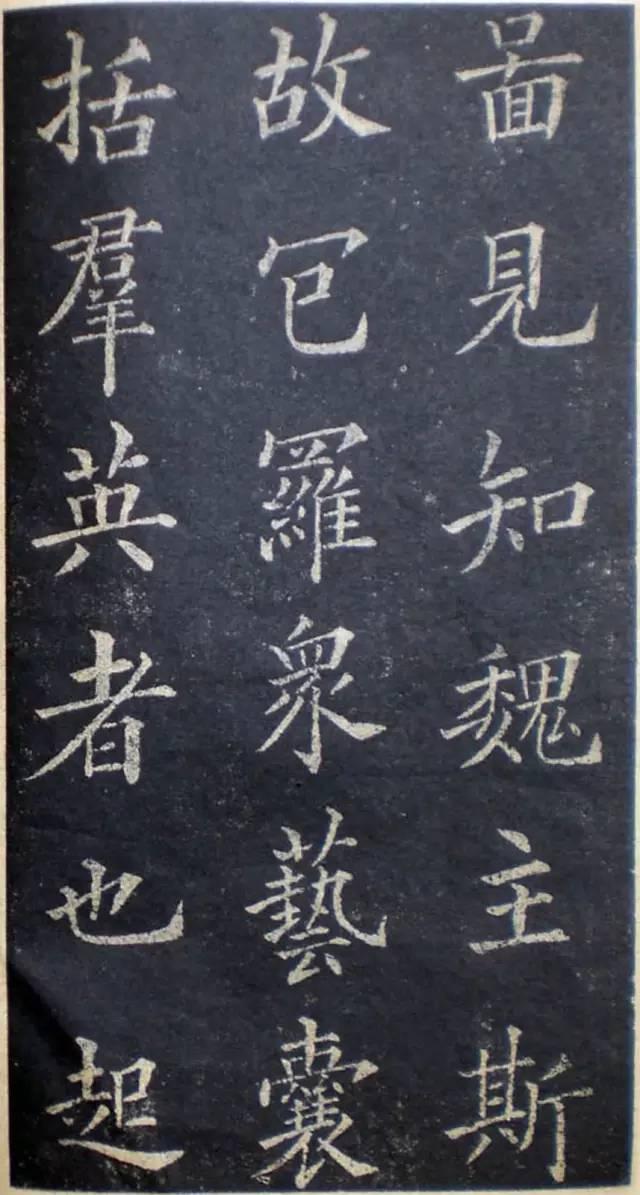 啚見知魏主斯
故包羅眾藝囊
括羣英者也起